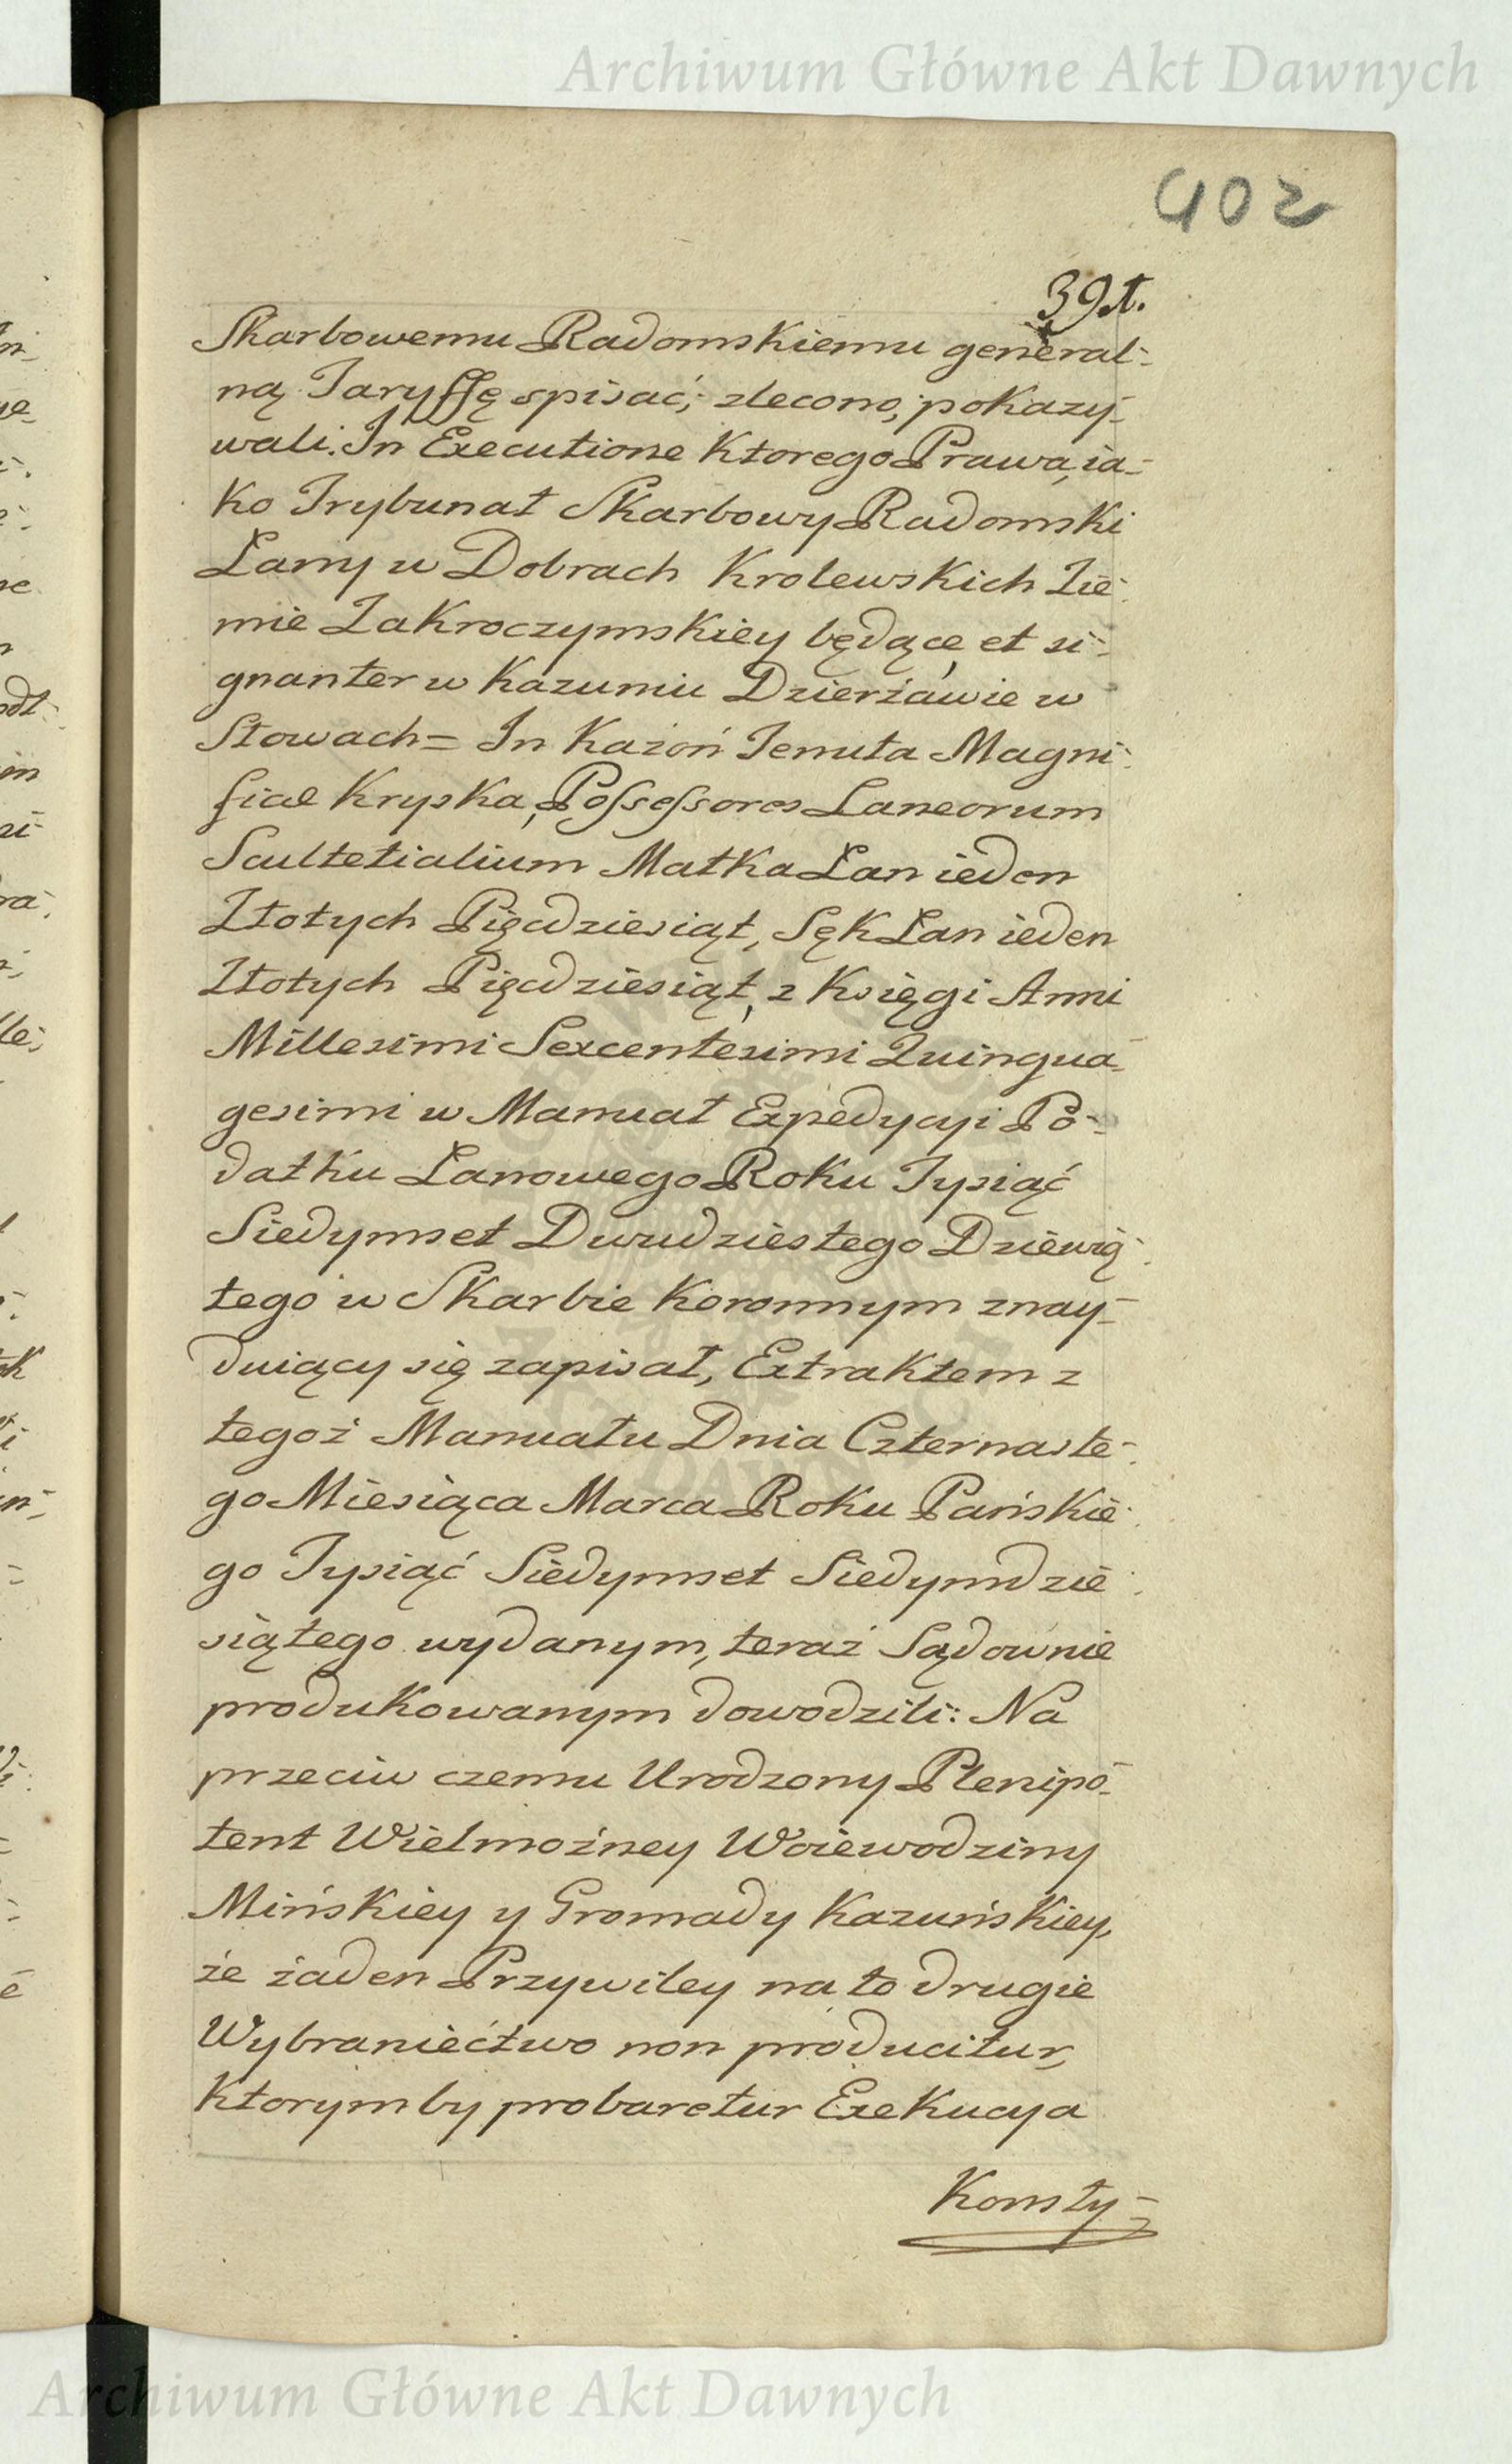 Archiwum Główne Akt Dawnych
402
39t.
Skarbowemu Radomskiemu general-
ną Taryffę spisać, zlecono, pokazy-
wali. In Executione ktorego Prawa, ia-
ko Trybunał Skarbowy Radomski
Łany w Dobrach Krolewskich Zie-
mie Zakroczymskiey będące, et si-
gnanter w Kazuniu Dzierżawie w
Słowach = In Kazoń Tenuta Magni-
ficae Kryska, Possessores Laneorum
Scultetialium Matka Łan ieden
Złotych Pięćdziesiąt, Sęk Łan ieden
Złotych Pięćdziesiąt, z Księgi Anni
Millesimi Sexcentesimi Quinqua-
gesimi w Manuał Expedycyi Po-
datku Łanowego Roku Tysiąć
Siedymset Dwudziestego Dziewią-
tego w Skarbie Koronnym znay-
duiący się zapisał, Extraktem z
tegoż Manuału Dnia Czternaste-
go Miesiąca Marca Roku Pańskie-
go Tysiąć Siedymset Siedymdzie-
siątego wydanym, teraz Sądownie
produkowanym dowodzili: Na
przeciw czemu Urodzony Plenipo-
tent Wielmożney Woiewodziny
Mińskiey y Gromady Kazuńskiey,
że żaden Przywiley na to drugie
Wybraniectwo non producitur,
ktorym by probaretur Exekucya
Konsty-
Archiwum Główne Akt Dawnych